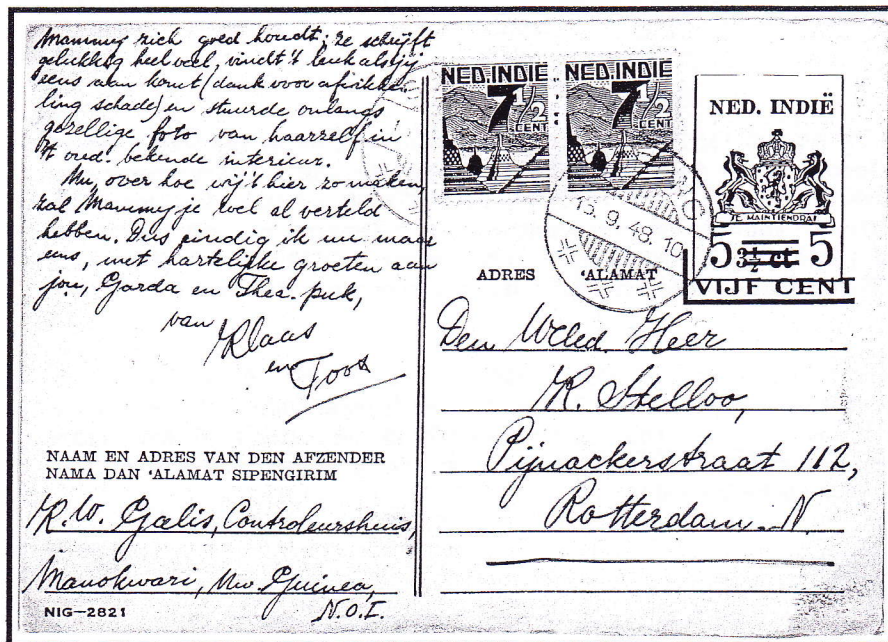 Mammy zich goed houdt; ze schrijft
gelukkig heel veel, vindt 't leuk als jij
eens aan komt (dank voor afwikke-
ling schade) en stuurde onlangs
gezellige foto van haarzelf in
't oud. bekende interieur.
Nu, over hoe wij 't hier zo maken,
zal Mammy je wel al verteld
hebben. Dus eindig ik nu maar
eens, met hartelijke groeten aan
jou, Garda en Thea. puk,
van
Klaas
en
Toos
NAAM EN ADRES VAN DEN AFZENDER
NAMA DAN 'ALAMAT SIPENGIRIM
K.W. Galis, Controleurshuis,
Manokwari, Nw. Guinea,
N.O.I.
NIG-2821
NED. INDIE
7 1/2
CENT
NED. INDIE
7 1/2
CENT
15. 9. 48. 10
NED. INDIË
JE MAINTIENDRAI
5 3½ ct 5
VIJF CENT
ADRES 'ALAMAT
Den WelEd. Heer
K. Stelloo,
Pijnackerstraat 112,
Rotterdam. N.